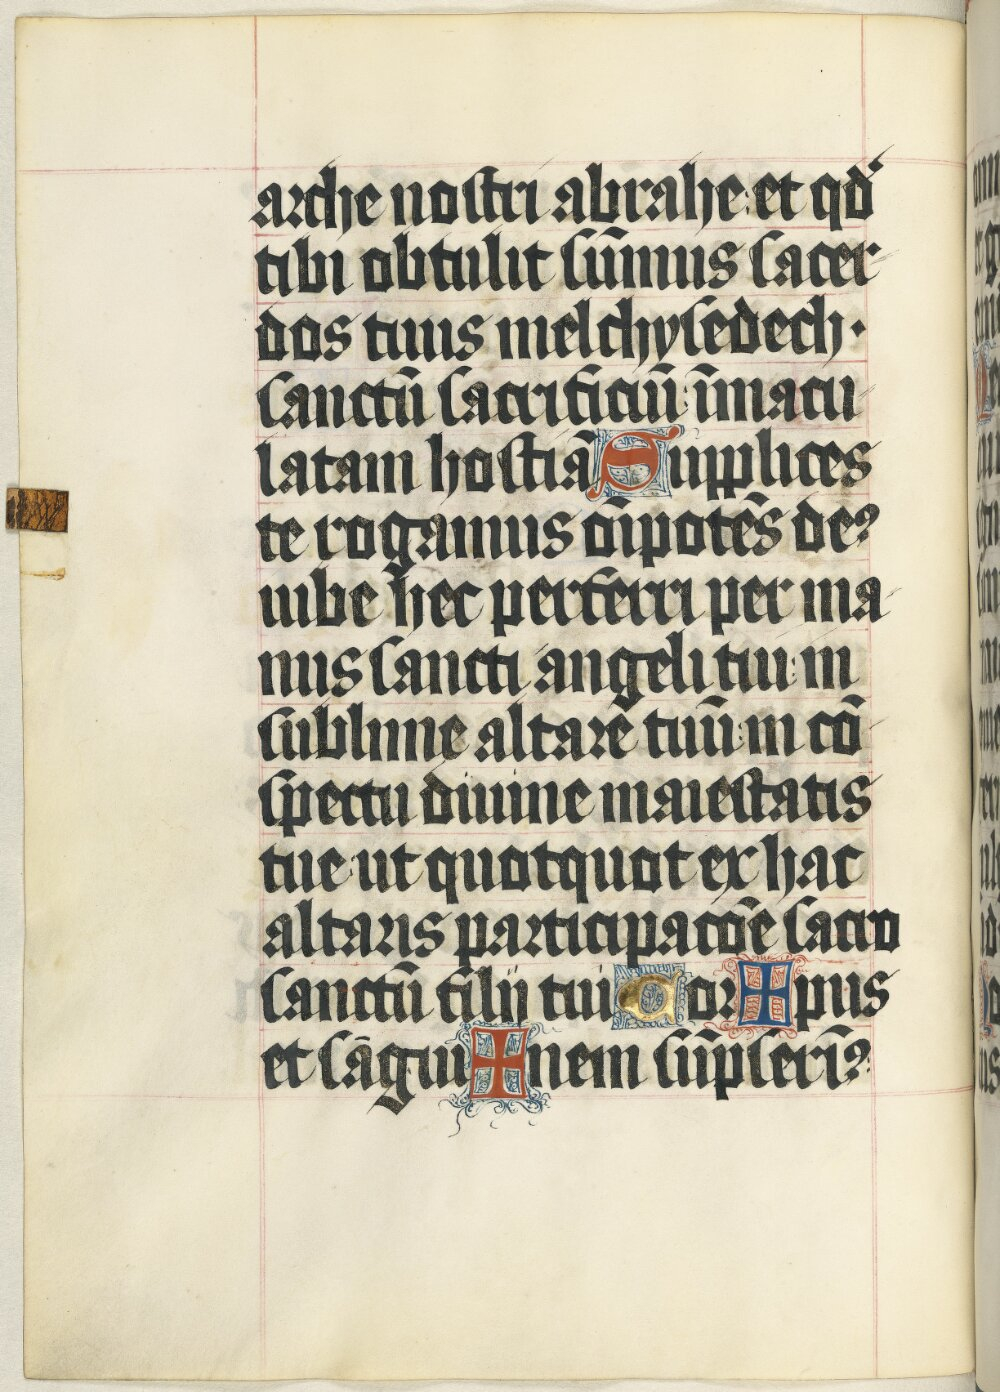 arche nostri abrahe: et qd
tibi obtulit su̅mus sacer
dos tuus melchysedech·
sanctu̅ sacrificiu̅: i̅macu
latam hostia̅ Supplices
te rogamus o̅ipote̅s de9
iube hec perferri per ma
nus sancti angeli tui: in
sublime altare tuu̅: in co̅
spectu diuine maiestatis
tue: ut quotquot ex hac
altaris participaco̅e sacro
sanctu̅ filij tui Cor✠pus
et sa̅gui✠nem su̅pseri̅9